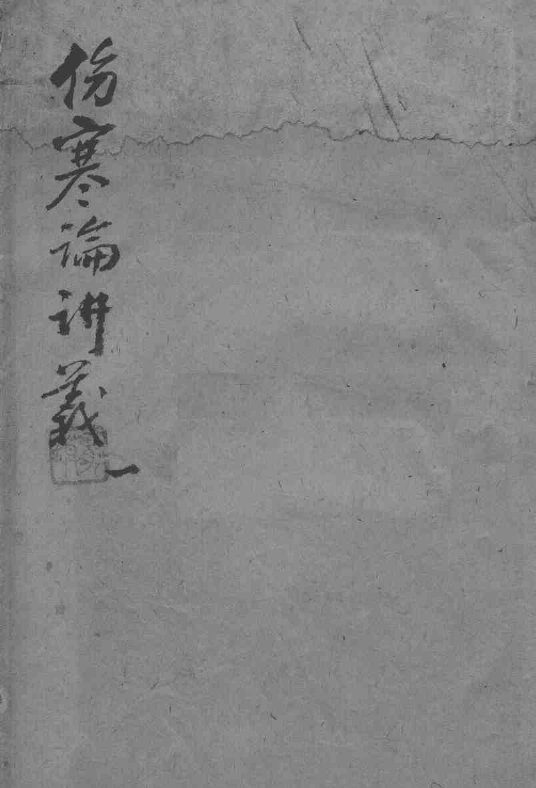 伤寒論讲義一